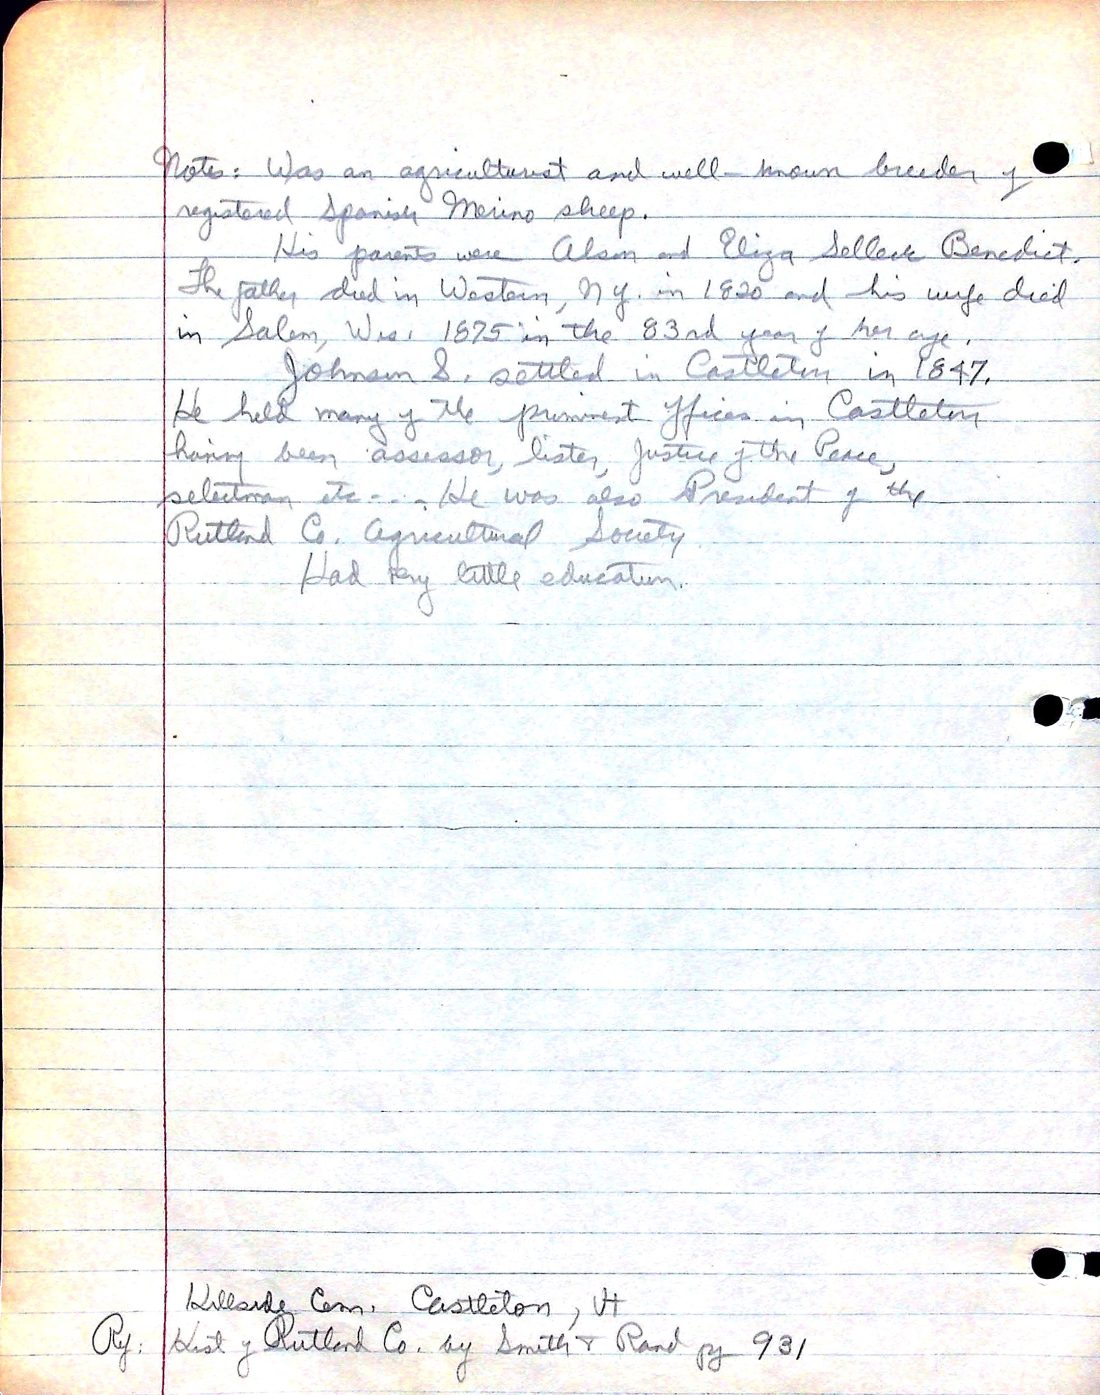 Notes: Was an agriculturist and well-known breeder of
registered Spanish Merino sheep.
His parents were Alson and Eliza Selleck Benedict.
The father died in Western, N.Y. in 1820 and his wife died
in Salem, Wis. 1875 in the 83rd year of her age.
Johnson S. settled in Castleton in 1847.
He held many of the prominent offices in Castleton
having been assessor, lister, Justice of the Peace,
selectman etc - . . He was also President of the
Rutland Co. Agricultural Society
Had very little education.
Hillside Cem. Castleton, Vt
Ref: Hist of Rutland Co. by Smith & Rand pg 931